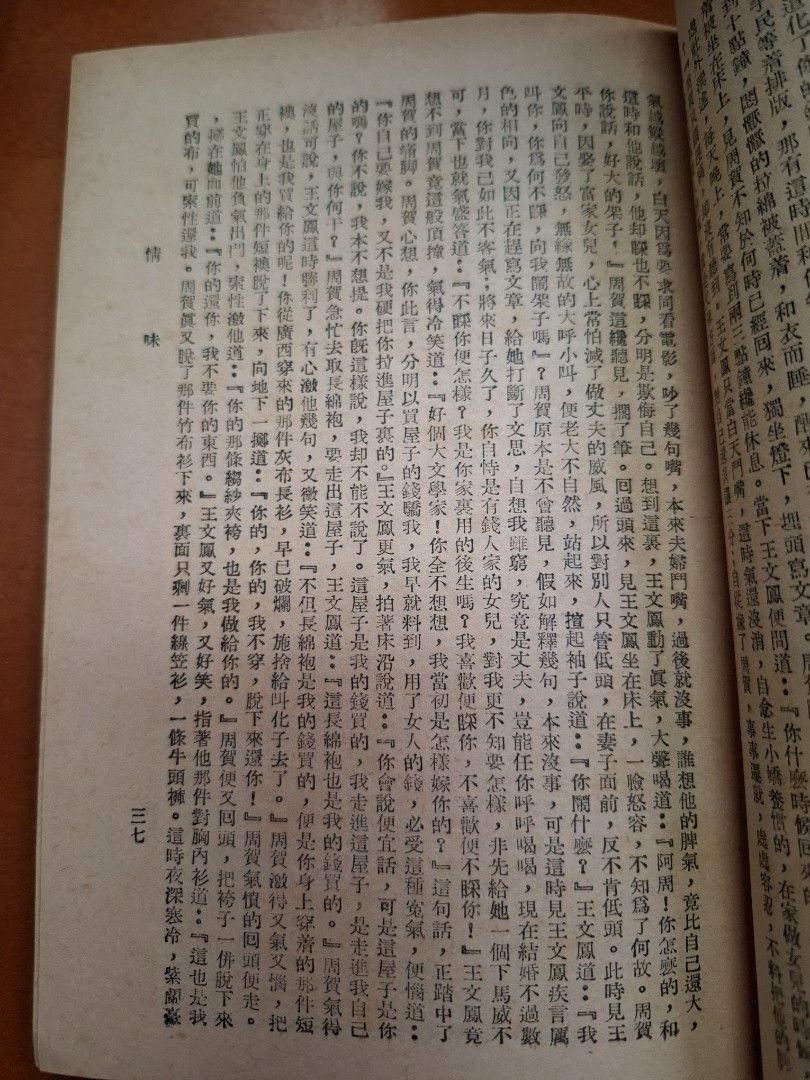 學民等着排版，那有這時間料
到十點鐘，悶懨懨的拉綿被蓋着，和衣而睡，醒來已
被坐在床上，見周賀不知於何時已經回來，獨坐燈下，埋頭寫文章。
每天晚上，常要寫到兩三點鐘纔能休息。當下王文鳳便問道：『你什麼時候回來的
王文鳳只當白天鬥嘴，這時氣還沒消，自念生小嬌養慣的，在家做女兒的時候
自從嫁了周賀，事事遷就，處處容忍，不料把他的脾
氣越縱越壞，白天因爲要求同看電影，吵了幾句嘴，本來夫婦鬥嘴，過後就沒事，誰想他的脾氣，竟比自己還大，
這時和他說話，他却睬也不睬，分明是欺侮自己。想到這裏，王文鳳動了眞氣，大聲喝道：『阿周！你怎麼的，和
你說話，好大的架子！』周賀這纔聽見，擱了筆。回過頭來，見王文鳳坐在床上，一臉怒容，不知爲了何故。周賀
平時，因娶了富家女兒，心上常怕減了做丈夫的威風，所以對別人只管低頭，在妻子面前，反不肯低頭。此時見王
文鳳向自己發怒，無緣無故的大呼小叫，便老大不自然，站起來，揎起袖子說道：『你鬧什麼？』王文鳳道：『我
叫你，你爲何不睬，向我鬧架子嗎』？周賀原本是不曾聽見，假如解釋幾句，本來沒事，可是這時見王文鳳疾言厲
色的相向，又因正在趕寫文章，給她打斷了文思，自想我雖窮，究竟是丈夫，豈能任你呼呼喝喝，現在結婚不過數
月，你對我已如此不客氣：將來日子久了，你自恃是有錢人家的女兒，對我更不知要怎樣，非先給她一個下馬威不
可，當下也就氣盛答道：『不睬你便怎樣？我是你家裏用的後生嗎？我喜歡便睬你，不喜歡便不睬你！』王文鳳竟
想不到周賀竟這般頂撞，氣得冷笑道：『好個大文學家！你全不想想，我當初是怎樣嫁你的？』這句話，正踏中了
周賀的痛脚。周賀心想，你此言，分明以買屋子的錢驕我，我早就料到，用了女人的錢，必受這種寃氣，便惱道：
『你自己要嫁我，又不是我硬把你拉進屋子裏的。』王文鳳更氣，拍著床沿說道：『你會說便宜話，可是這屋子是你
的嗎？你不說，我本不想提。你旣這樣說，我却不能不說了。這屋子是我的錢買的，我走進這屋子，是走進我自己
的屋子，與你何干？』周賀急忙去取長綿袍，要走出這屋子，王文鳳道：『這長綿袍也是我的錢買的。』周賀氣得
沒話可說，王文鳳這時勝利了，有心激他幾句，又微笑道：『不但長綿袍是我的錢買的，便是你身上穿着的那件短
襖，也是我買給你的呢！你從廣西穿來的那件灰布長衫，早已破爛，施捨給叫化子去了。』周賀激得又氣又惱，把
正穿在身上的那件短襖脫了下來，向地下一擲道：『你的，你的，我不穿，脫下來還你！』周賀氣憤的回頭便走。
王文鳳怕他負氣出門，索性激他道：『你的那條縐紗夾袴，也是我做給你的。』周賀便又回頭，把袴子一併脫下來
，擲在她面前道：『你的還你，我不要你的東西。』王文鳳又好氣，又好笑，指著他那件對胸內衫道：『這也是我
買的布，可索性還我。周賀眞又脫了那件竹布衫下來，裏面只剩一件線笠衫，一條牛頭褲。這時夜深寒冷，紫蘭臺
情味
三七